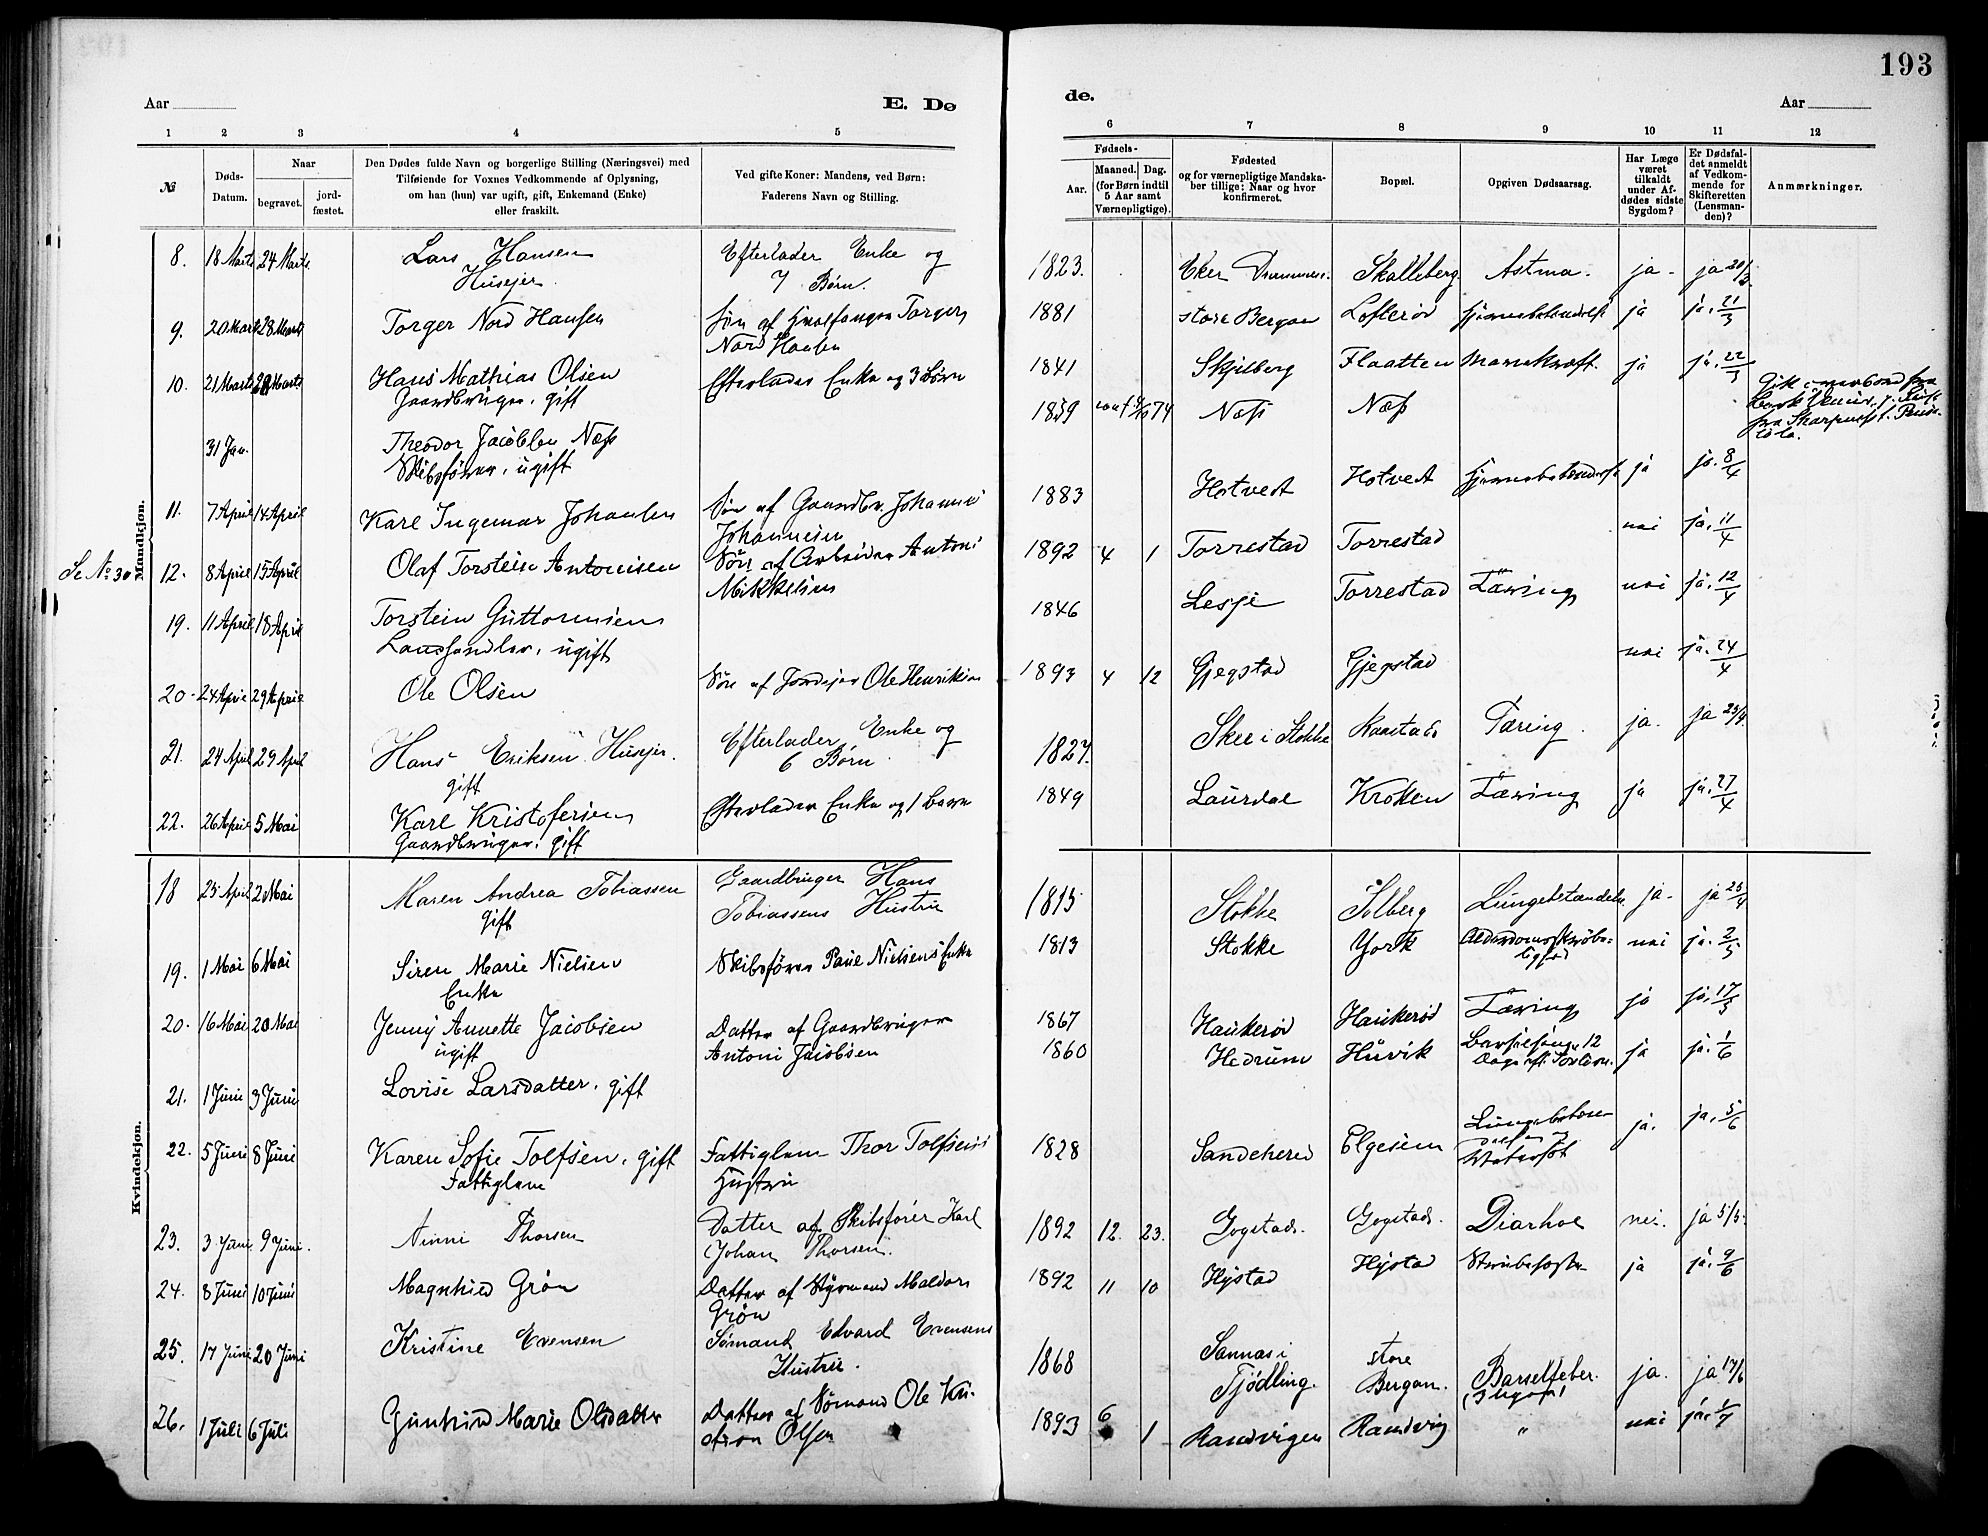 193
Aar
E. Dø
de.
Aar
1 2 3 4 5
6 7 8 9 10 11 12
№
Døds-
Datum.
Naar
begravet.
jord-
fæstet.
Den Dødes fulde Navn og borgerlige Stilling (Næringsvei) med
Tilføiende for Voxnes Vedkommende af Oplysning,
om han (hun) var ugift, gift, Enkemand (Enke)
eller fraskilt.
Ved gifte Koner: Mandens, ved Børn:
Faderens Navn og Stilling.
Fødsels-
Aar.
Maaned.
Dag.
(for Børn indtil
5 Aar samt
Værnepligtige).
Fødested
og for værnepligtige Mandska-
ber tillige: Naar og hvor
konfirmeret.
Bopæl.
Opgiven Dødsaarsag.
Har Læge
været
tilkaldt
under Af-
dødes sidste
Sygdom?
Er Dødsfal-
det anmeldt
af Vedkom-
mende for
Skifteretten
(Lensman-
den)?
Anmærkninger.
Mandkjøn.
8. 18 Marts 24 Marts. Lars Hansen Efterlader Enke og 1823. Eker Skalleberg Astma. ja. ja 20/3
Husejer 7 Børn.
9. 20 Marts 28 Marts Torger Nord Hansen Søn af Torger 1881 store Bergan Lofterød ja ja. 21/3
Nord Hansen
10. 21 Marts 28 Marts Hans Mathias Olsen Efterlader Enke og 3 Børn 1841 Skjelberg Flaatten ja ja. 22/3
Gaardbruger. gift
31 Jan. Theodor Jacobsen Næss 1859 Næss Næss
Skibsfører, ugift
11. 7 April 14 April Karl Ingemar Johansen Søn af Gaardbr. Johannes 1883 Hotvedt Hotvedt ja ja. 8/4
Johannesen
Se No 30
12. 8 April 15 April Olaf Torstein Antonisen Søn af Arbeider Antoni 1892 4 1 Torrestad Torrestad nei ja. 11/4
Mikkelsen
19. 11 April 18 April Torstein Guttormsen 1846 Lesje Torrestad Tæring nei ja. 12/4
ugift
20. 24 April 29 April Ole Olsen Søn af Jordejer Ole Henriksen 1893 4 12 Gjegstad Gjegstad nei ja. 24/4
21. 24 April 29 April Hans Eriksen Husejer. Efterlader Enke og 1827. Skee i Stokke Tæring. ja. ja 25/4
gift 6 Børn
22. 26 April 5 Mai Karl Kristofersen Efterlader Enke og 1 Barn 1849 Laurdal Krokken Tæring ja ja. 27/4
Gaardbruger. gift
Kvindekjøn.
18 25 April 2 Mai Maren Andrea Tobiassen Gaardbruger Hans 1815 Stokke Solberg Lungebetændelse ja. ja 25/4
gift Tobiassens Hustru
19. 1 Mai 6 Mai Siren Marie Nielsen Skibsfører Paul Nielsens Enke 1813 Stokke York nei ja. 2/5
Enke
20. 16 Mai 20 Mai Jenny Annette Jacobsen Datter af Gaardbruger 1867 Haukerød Haukerød Tæring ja ja. 17/5
ugift Antoni Jacobsen
21. 1 Juni 3 Juni Lovise Larsdatter. gift 1860 Hedrum Huvik Barselseng 12 ja ja. 1/6
22. 5 Juni 8 Juni Karen Sofie Tolfsen, gift Fattiglem Thor Tolfsens 1828 Sandeherred Elgesem ja. ja. 5/6
Fattiglem Hustru Vatersot
23. 3 Juni 9 Juni. Anni Thorsen Datter af Skibsfører Karl 1892 12. 23. Gogstad. Gogstad. Diarhoe nei. ja 5/5.
Johan Thorsen.
24. 8 Juni 10 Juni Magnhild Grøn Datter af Styrmand 1892 11 10 Hystad Hystad Strubehoste ja ja. 9/6
Grøn
25. 17 Juni 20 Juni Kristine Evensen Sømand Edvard Evensens 1868 Sannæs i store Barselfeber. ja. ja 17/6
Hustru. Tjødling. Bergan.
26. 1 Juli 6 Juli Gunhild Marie Olsdatter Datter af Sømand Ole Kri- 1893 6 1 Randvigen Randvig " nei ja. 1/7
Olsen